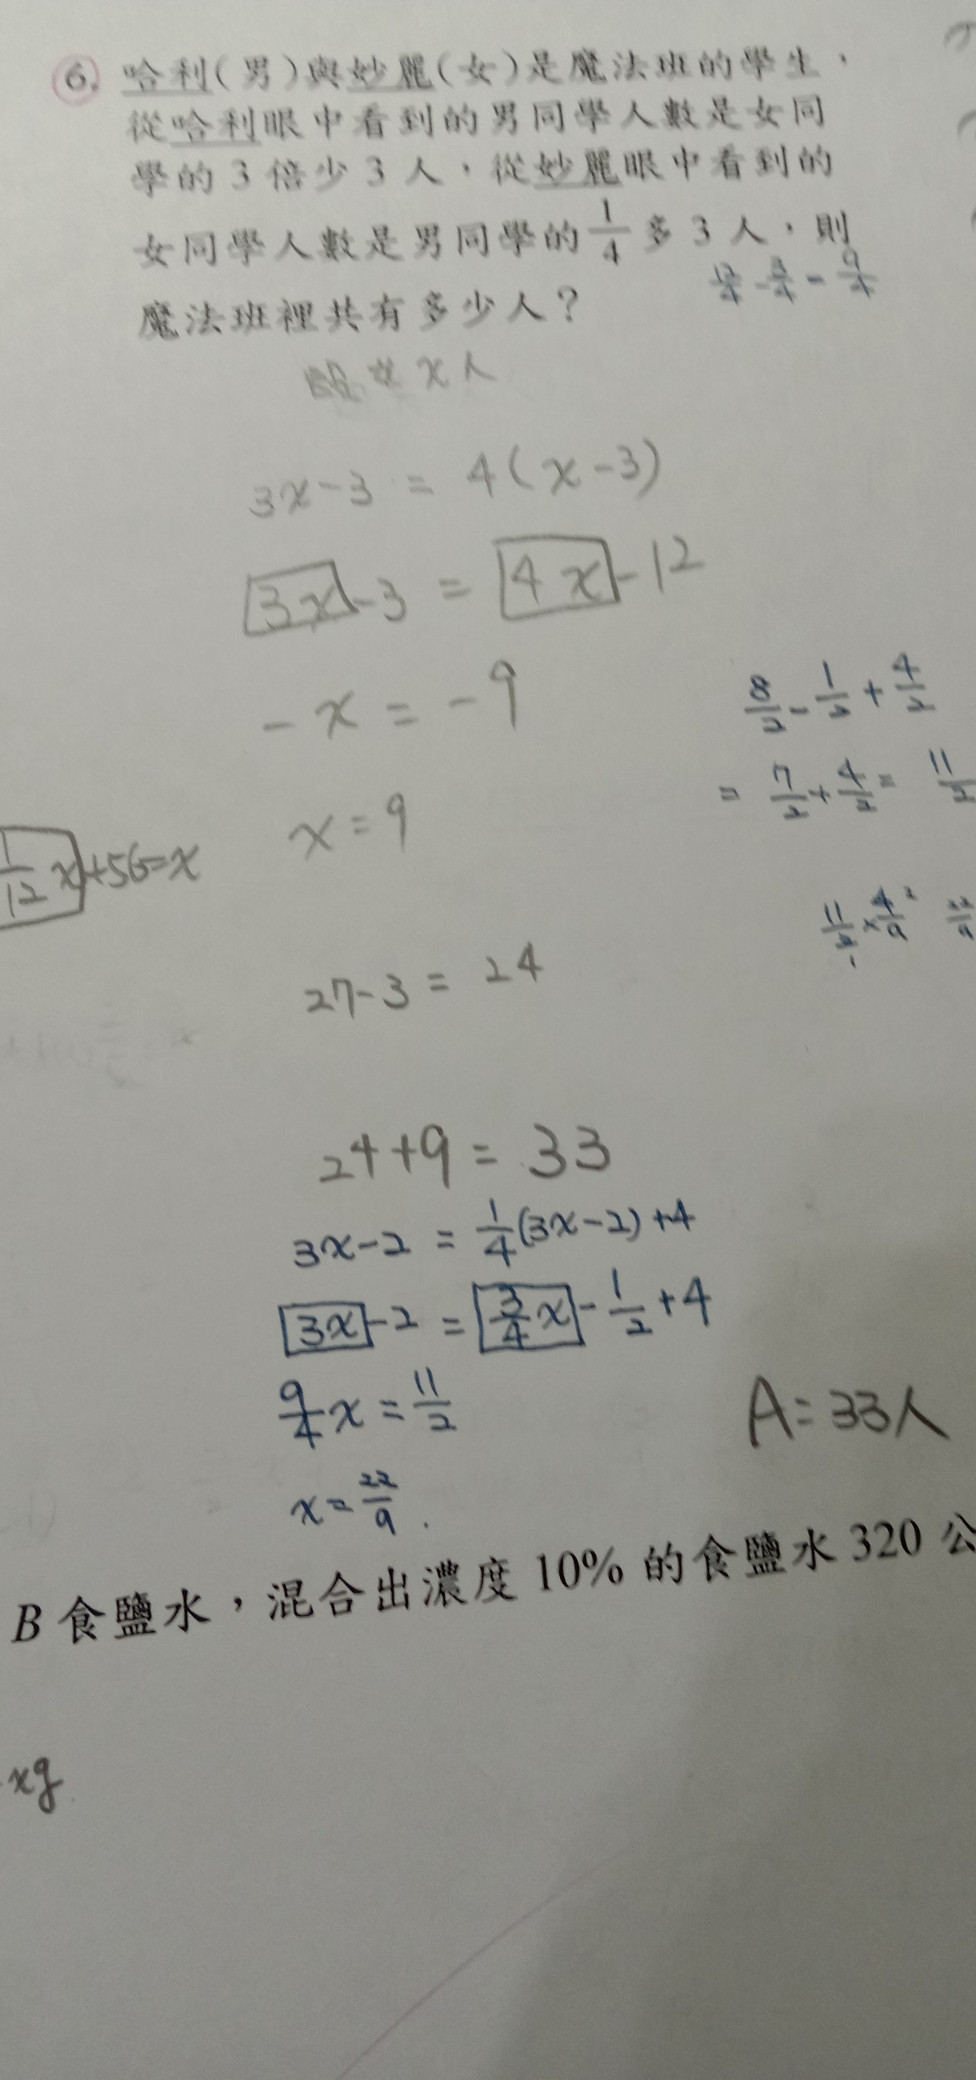 6. 哈利(男)與妙麗(女)是魔法班的學生，
從哈利眼中看到的男同學人數是女同
學的 3 倍少 3 人，從妙麗眼中看到的
女同學人數是男同學的 1/4 多 3 人，則
12/4 - 3/4 = 9/4
魔法班裡共有多少人？
設女 x 人
3x-3 = 4(x-3)
3x-3 = 4x-12
-x = -9
8/2 - 1/2 + 4/2
= 7/2 + 4/2 = 11/2
x = 9
1/12 x+56=x
11/2 × 4/9 22/9
27-3 = 24
24+9 = 33
3x-2 = 1/4(3x-2)+4
3x-2 = 3/4x - 1/2 + 4
9/4x = 11/2
A = 33人
x = 22/9.
B 食鹽水，混合出濃度 10% 的食鹽水 320 公
xg